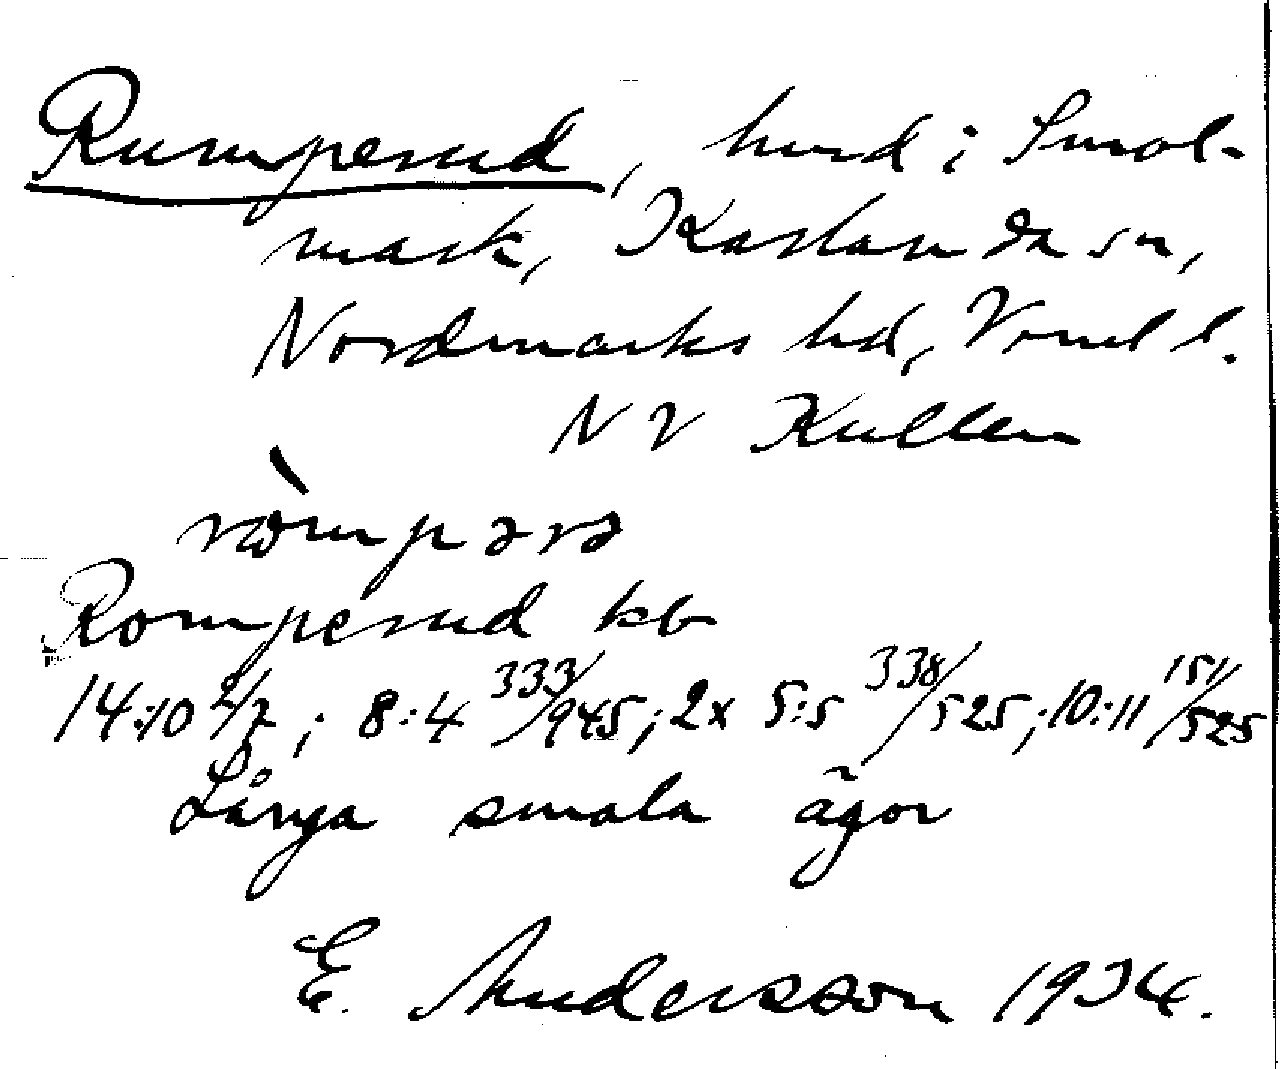 Rumperud, hmd i Smol-
mark, Karlanda sn,
Nordmarks hd, Vrml l.
NV Kullen
ròmpərə
Romperud kb
14:10 2/7; 8:4 333/945; 2x 5:5 338/525; 10:11 151/525
Långa smala ägor
E. Andersson 1934.